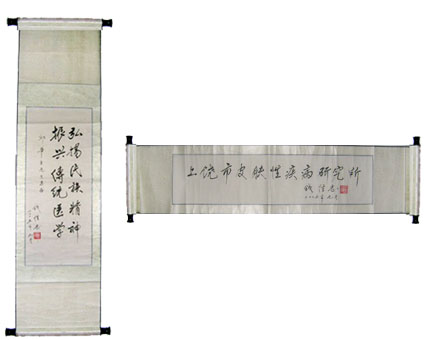 弘揚民族精神
振兴傳统医学
钱信忠
上饶市皮肤性疾病研究所
钱信忠